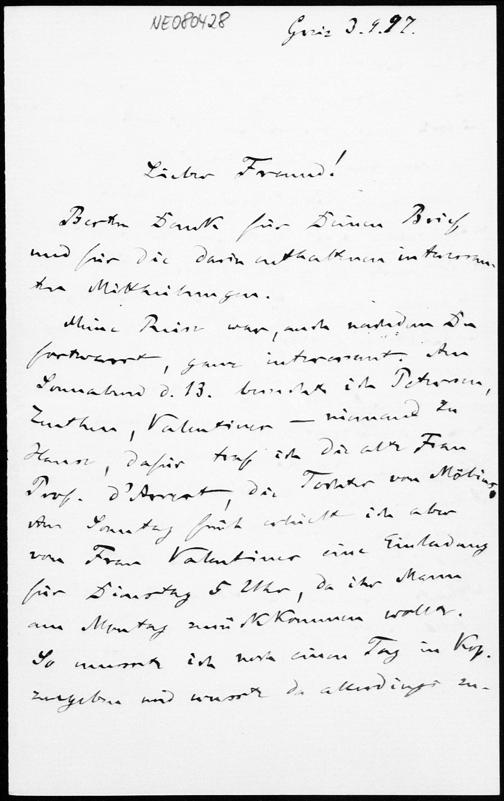 NE080428
Greiz 3.9.97.
Lieber Freund!
Besten Dank für Deinen Brief
und für die darin enthaltenen interessan-
ten Mittheilungen.
Meine Reise war, auch nachdem Du
fortwarst, ganz interessant. Am
Sonnabend d. 13. besuchte ich Petersen,
Zeuthen, Valentiner – niemand zu
Hause, dafür traf ich die alte Frau
Prof. d'Arrest, die Tochter von Möbius.
Am Sonntag früh erhielt ich aber
von Frau Valentiner eine Einladung
für Dienstag 5 Uhr, da ihr Mann
am Montag zurückkommen wollte.
So musste ich noch einen Tag in Kop.
zugeben und wusste da allerdings zu-